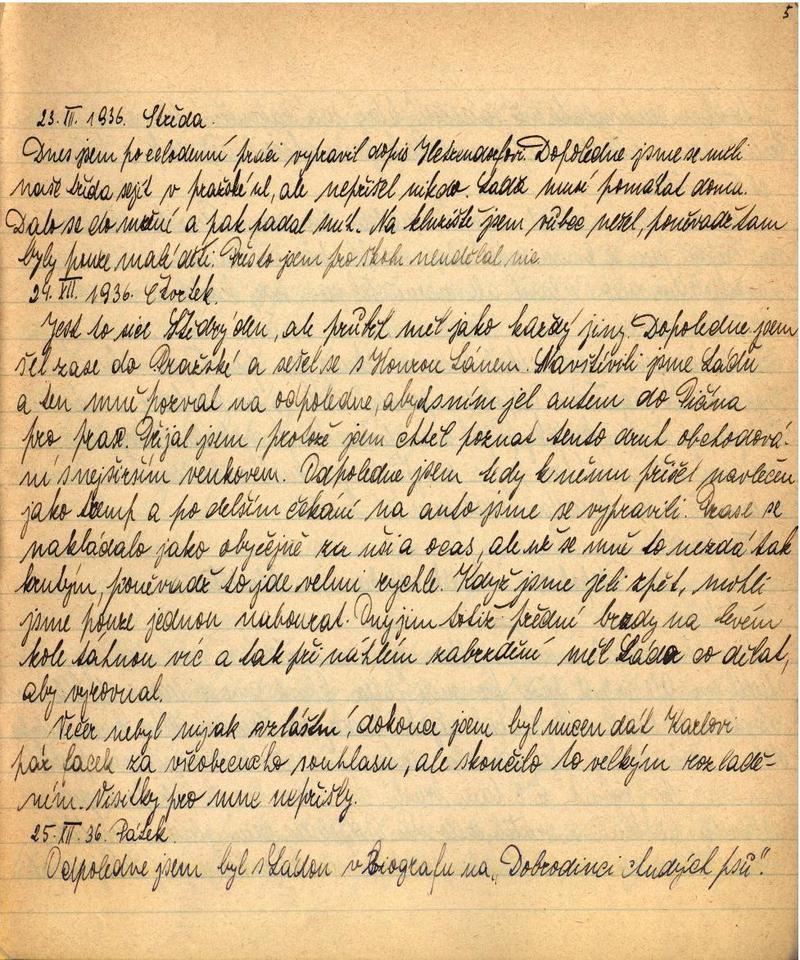 5
23. XII. 1936. Středa.
Dnes jsem po celodenní práci vypravil dopis Hetzendorfovi. Dopoledne jsme se měli
naše třída sejít v pražské ul, ale nepřišel nikdo. Láďa musí pomáhat doma.
Dalo se do mžení a pak padal sníh. Na kluziště jsem vůbec nešel, poněvadž tam
byly pouze malé děti. Přesto jsem pro školu neudělal nic.
24. XII. 1936. Čtvrtek.
Jest to sice Štědrý den, ale průběh měl jako každý jiný. Dopoledne jsem
šel zase do Pražské a sešel se s Honzou Lánem. Navštívili jsme Láďu
a ten mně pozval na odpoledne, abych s ním jel autem do
pro prase. Přijal jsem, protože jsem chtěl poznat tento druh obchodová-
ní s nejširším venkovem. Odpoledne jsem tedy k němu přišel navlečen
jako tramp a po delším čekání na auto jsme se vypravili. Prase se
nakládalo jako obyčejně za uši a ocas, ale už se mně to nezdá tak
krutým, poněvadž to jde velmi rychle. Když jsme jeli zpět, mohli
jsme pouze jednou nabourat. Ony jim totiž přední brzdy na levém
kole tahnou víc a tak při náhlém zabrzdění měl Láďa co dělat,
aby vyrovnal.
Večer nebyl nijak vzláštní, dokonce jsem byl nucen dát Karlovi
pár facek za všeobecného souhlasu, ale skončilo to velkým rozladě-
ním. Visitky pro mne nepřišly.
25. XII. 36. Pátek.
Odpoledne jsem byl s Láďou v Biografu na „Dobrodinci chudých psů".